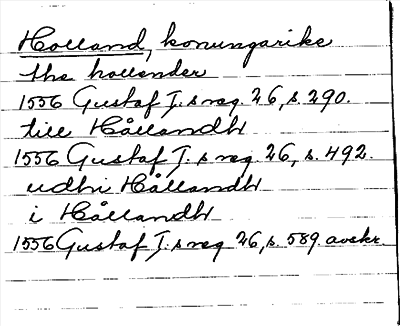 Holland, konungarike
the hollender
1556 Gustaf I:s reg. 26, s. 290.
till Hållandh
1556 Gustaf I:s reg. 26, s. 492.
udhi Hållandh
i Hållandh
1556 Gustaf I:s reg 26, s. 589. avskr.